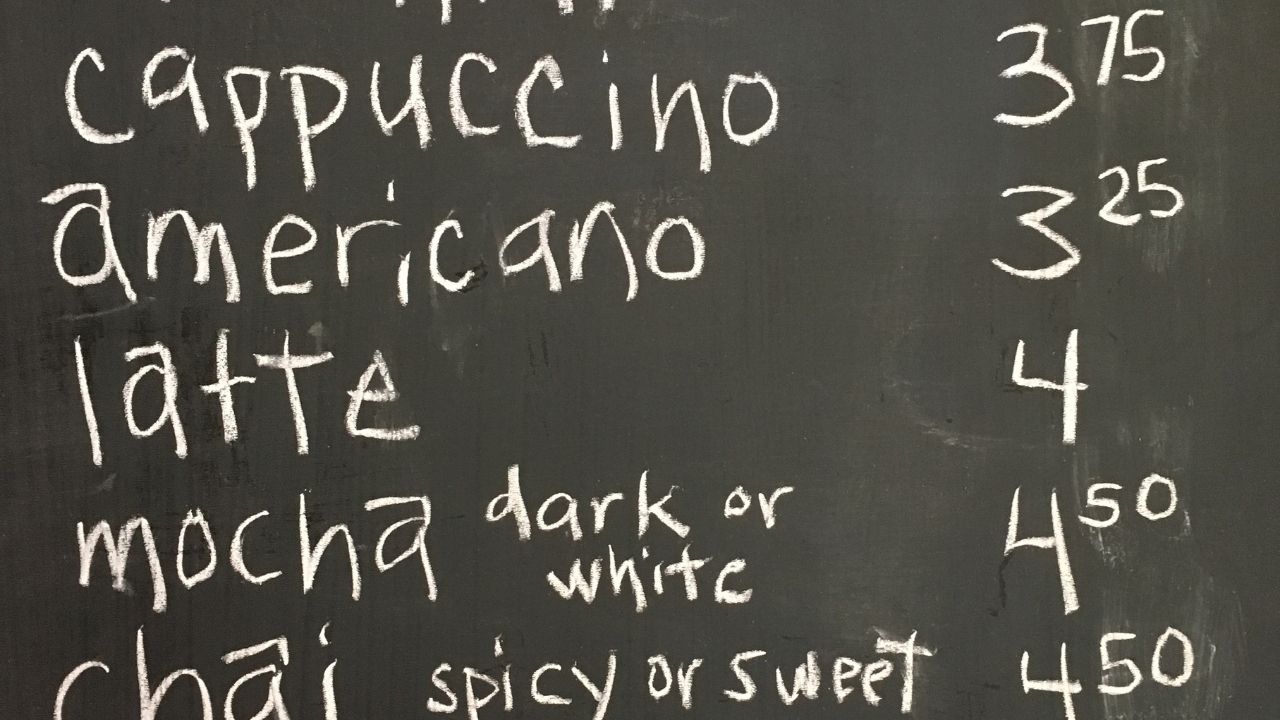 cappuccino 3 75
americano 3 25
latte 4
mocha dark or white 4 50
chai spicy or sweet 4 50